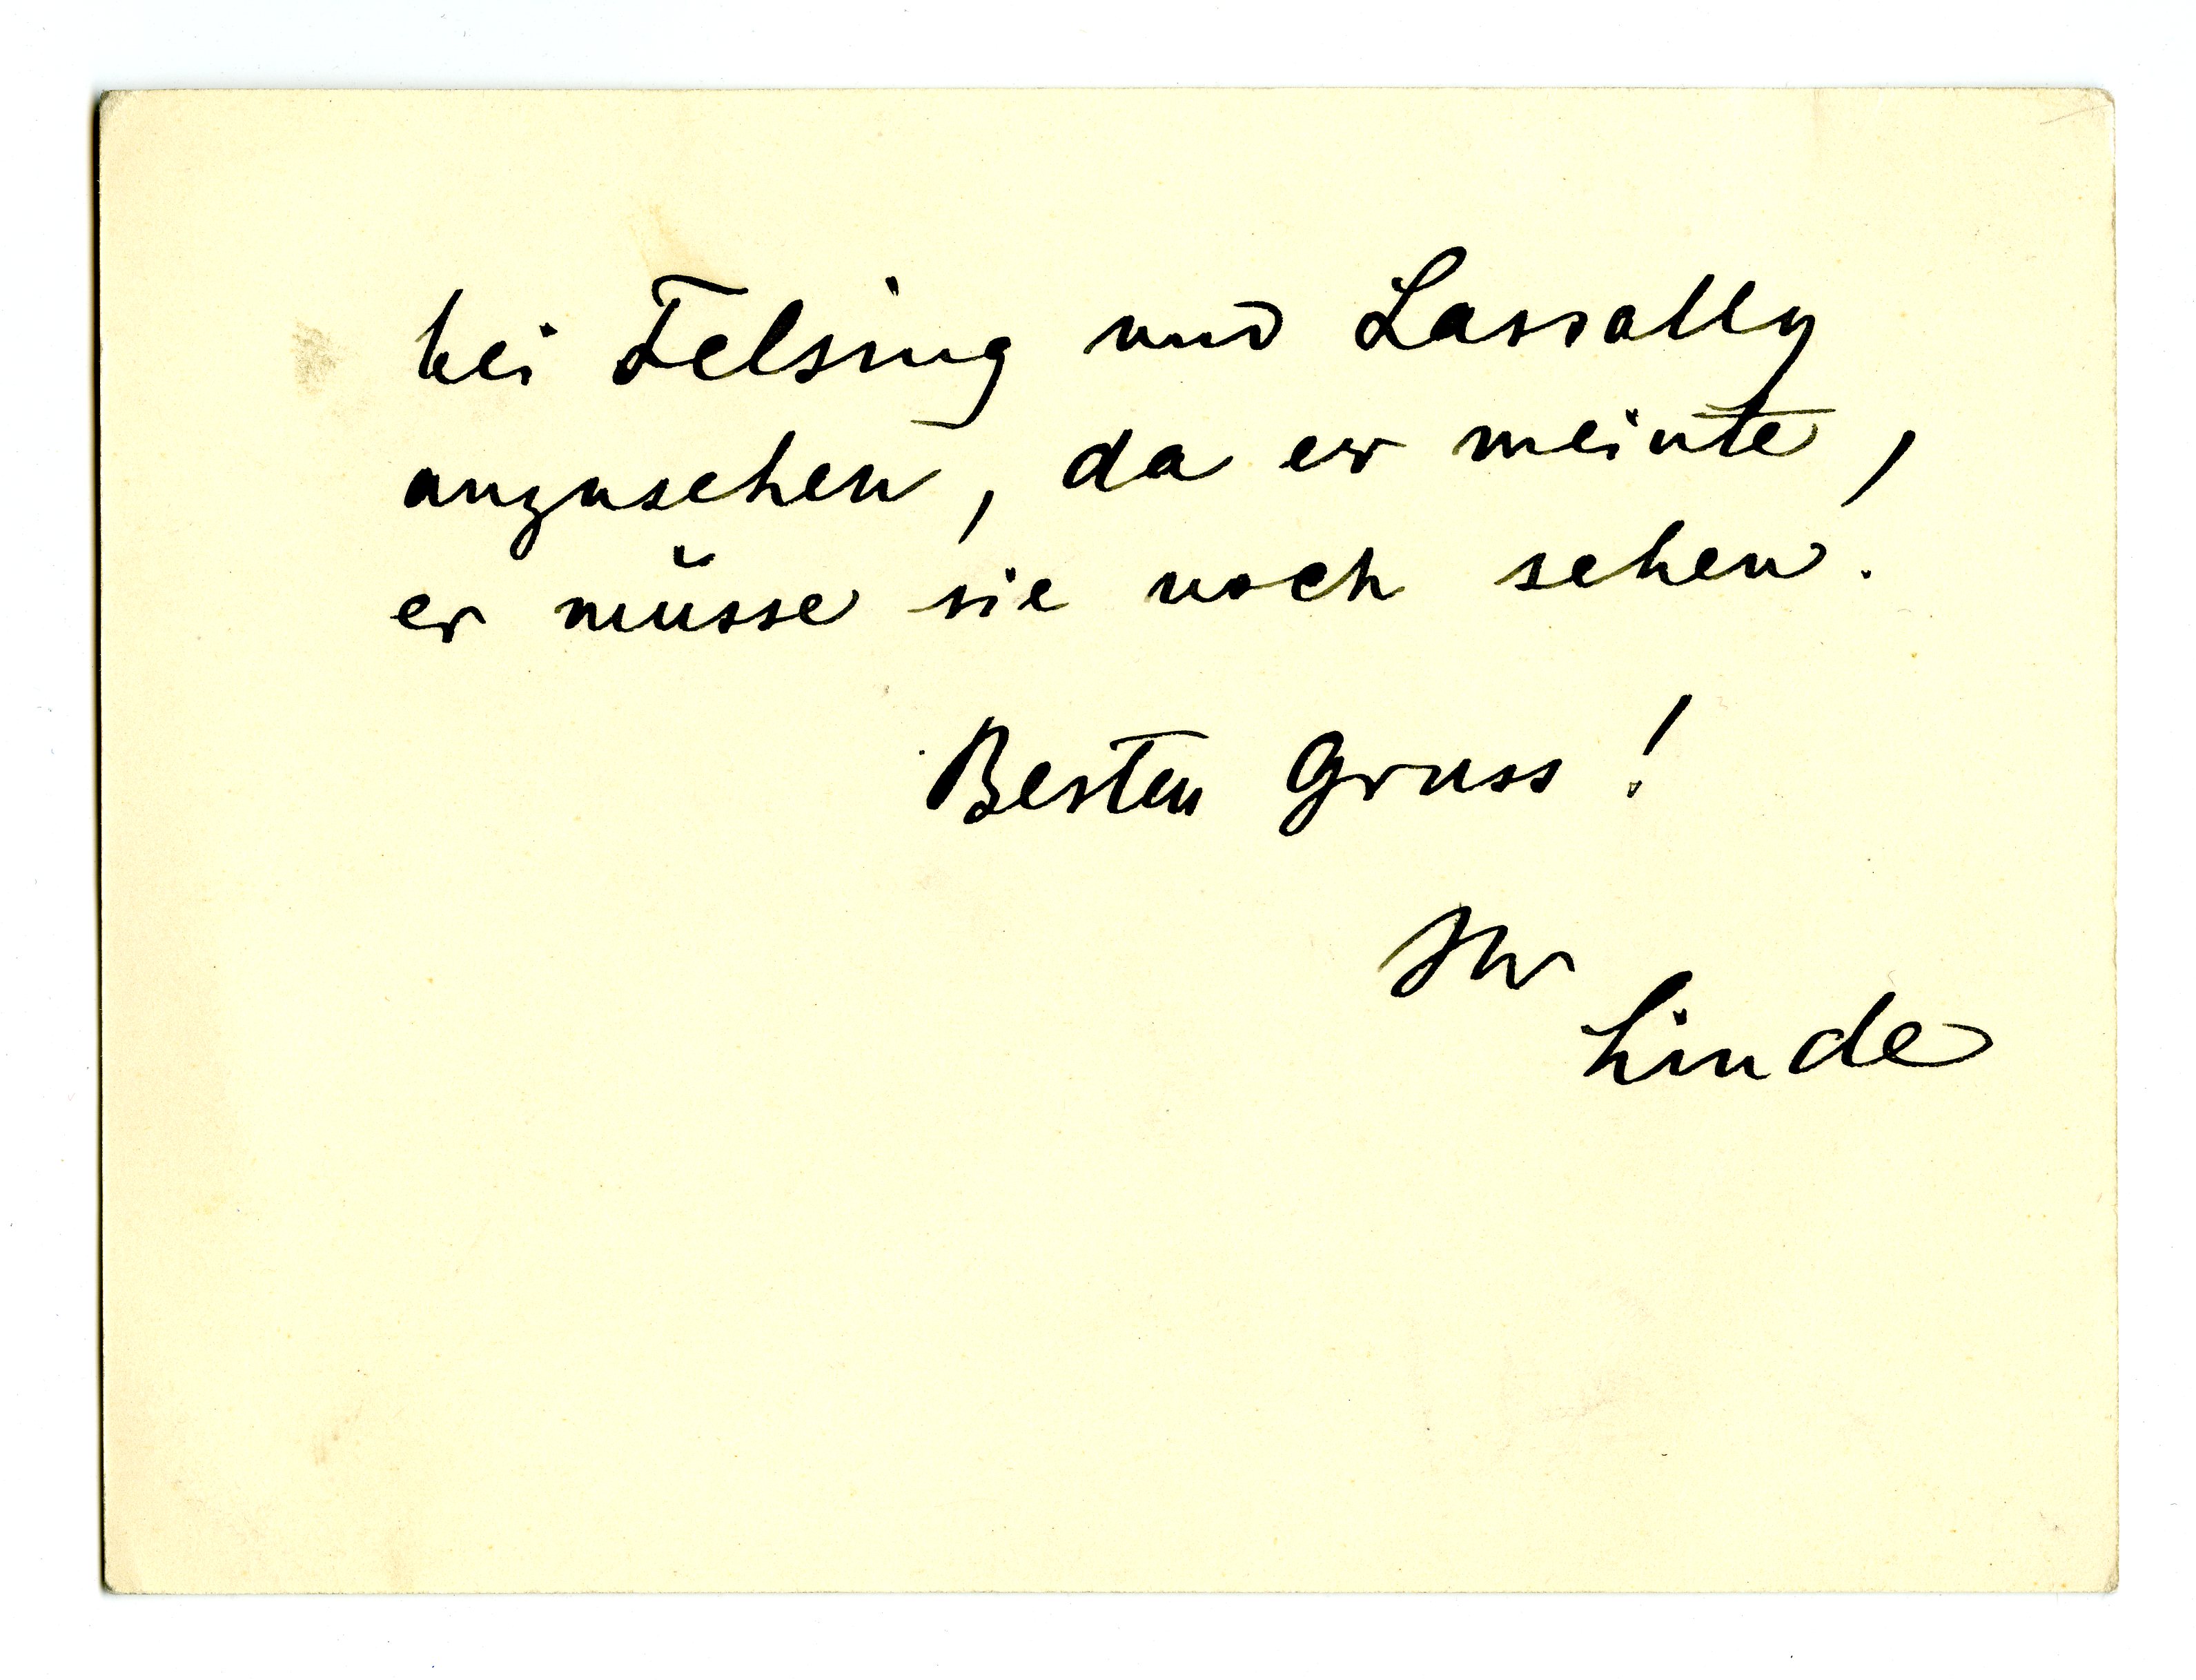 bei Felsing und Lassally
anzusehen, da er meinte,
er müsse sie noch sehen.
Besten Gruss!
Ihr
Linde